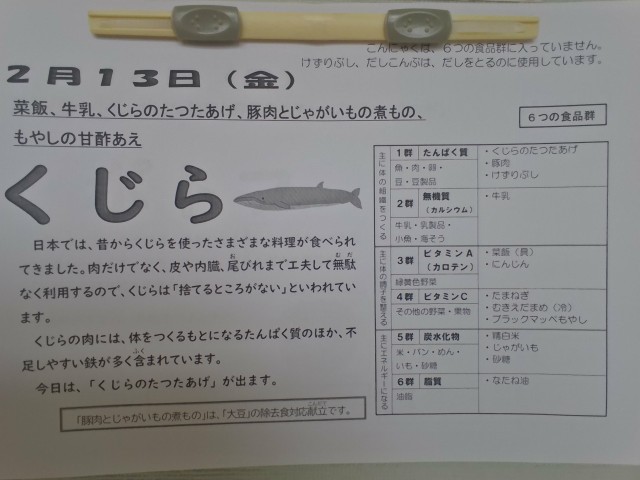 こんにゃくは、６つの食品群に入っていません。
けずりぶし、だしこんぶは、だしをとるのに使用しています。
２月１３日（金）
菜飯、牛乳、くじらのたつたあげ、豚肉とじゃがいもの煮もの、
もやしの甘酢あえ
くじら
日本では、昔からくじらを使ったさまざまな料理が食べられ
てきました。肉だけでなく、皮や内臓、尾びれまで工夫して無駄
なく利用するので、くじらは「捨てるところがない」といわれてい
ます。
くじらの肉には、体をつくるもとになるたんぱく質のほか、不
足しやすい鉄が多く含まれています。
今日は、「くじらのたつたあげ」が出ます。
「豚肉とじゃがいもの煮もの」は、「大豆」の除去食対応献立です。
６つの食品群
主に体の組織をつくる
１群 たんぱく質
魚・肉・卵・
豆・豆製品
・くじらのたつたあげ
・豚肉
・けずりぶし
２群 無機質
（カルシウム）
牛乳・乳製品・
小魚・海そう
・牛乳
主に体の調子を整える
３群 ビタミンA
（カロテン）
緑黄色野菜
・菜飯（具）
・にんじん
４群 ビタミンC
その他の野菜・果物
・たまねぎ
・むきえだまめ（冷）
・ブラックマッペもやし
主にエネルギーになる
５群 炭水化物
米・パン・めん・
いも・砂糖
・精白米
・じゃがいも
・砂糖
６群 脂質
油脂
・なたね油